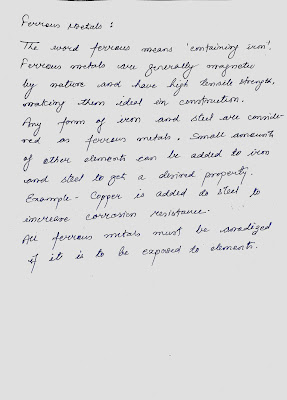 Ferrous Metals :
The word ferrous means 'containing iron'.
Ferrous metals are generally magnetic
by nature and have high tensile strength,
making them ideal in construction.
Any form of iron and steel are conside-
red as ferrous metals. Small amounts
of other elements can be added to iron
and steel to get a desired property.
Example - Copper is added to steel to
increase corrosion resistance.
All ferrous metals must be anodized
if it is to be exposed to elements.